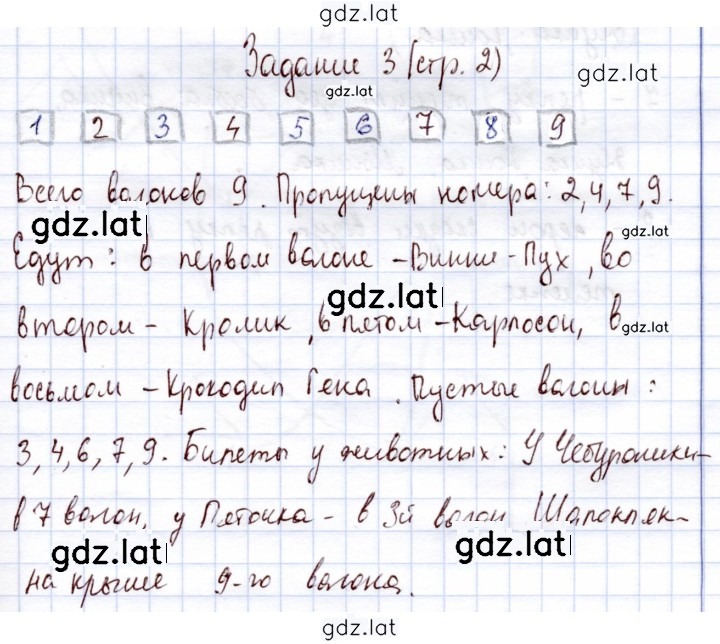 gdz.lat
Задание 3 (стр. 2)
gdz.lat
gdz.lat
1 2 3 4 5 6 7 8 9
Всего вагонов 9. Пропущены номера: 2,4,7,9.
gdz.lat
gdz.lat
Едут: в первом вагоне - Винни-Пух, во
gdz.lat
втором - Кролик, в пятом - Карлосон, в
gdz.lat
восьмом - Крокодил Гена. Пустые вагоны:
3,4,6,7,9. Билеты у животных: У Чебурашки-
в 7 вагон, у Пяточка - в 3й вагон, Шапокляк-
gdz.lat
gdz.lat
на крыше 9-го вагона.
gdz.lat